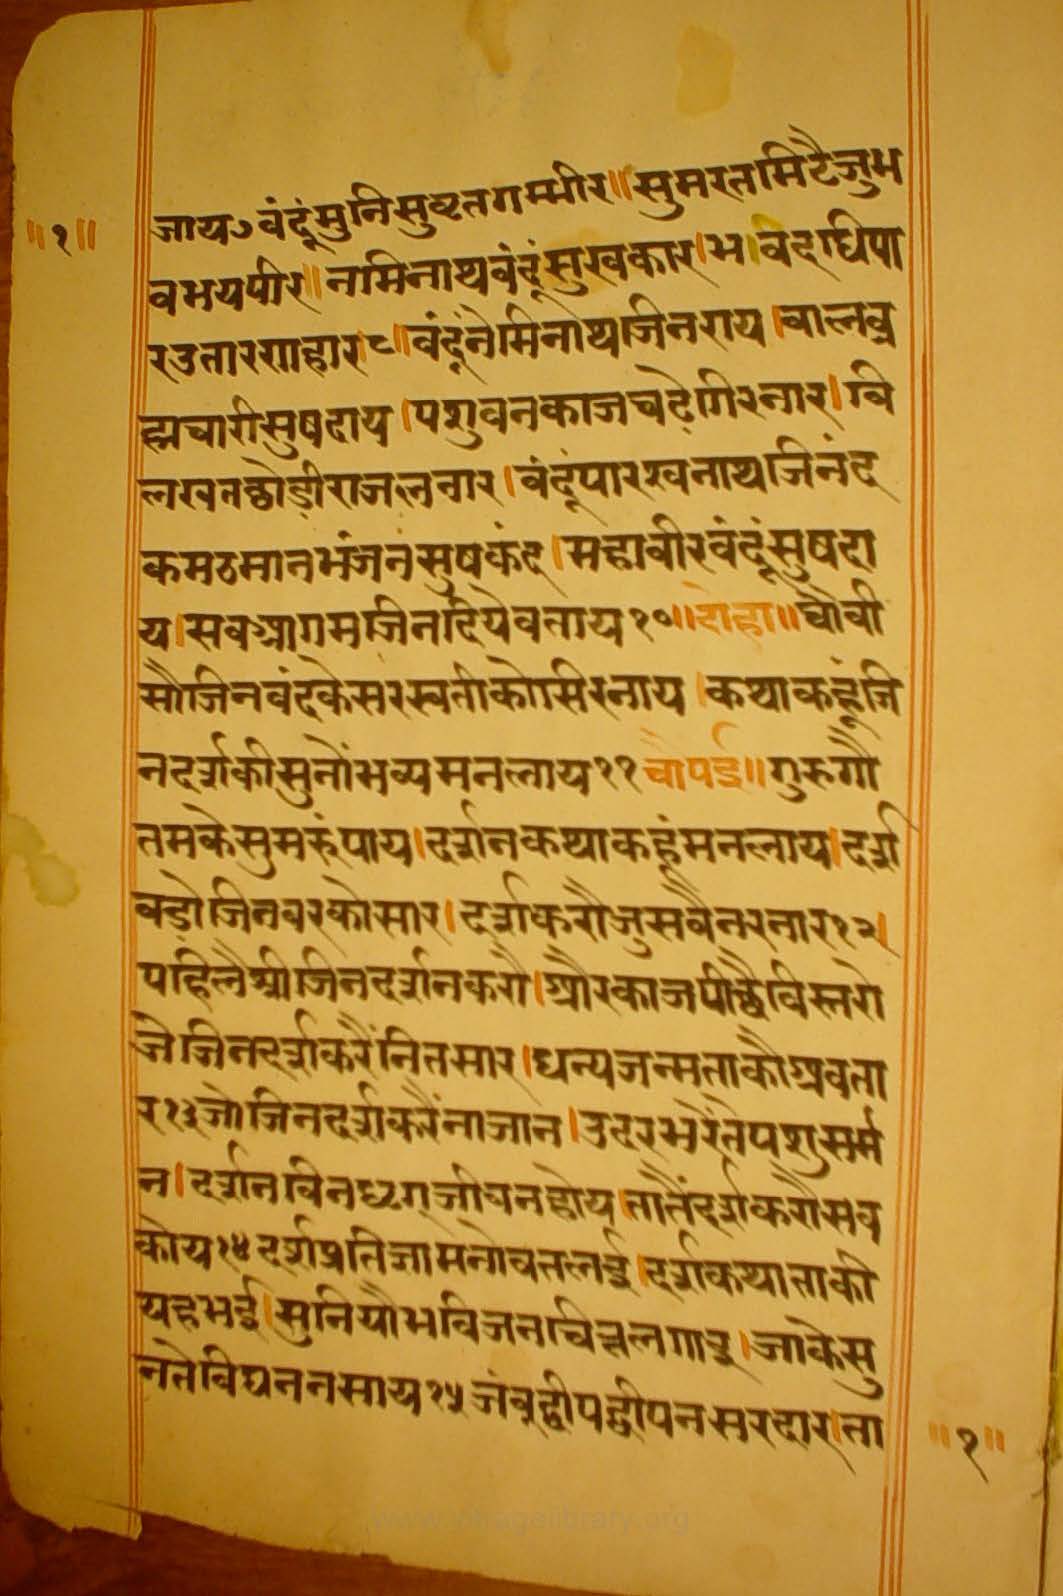 जाय७वंदूंमुनिसुव्रतगम्भीर॥सुमरतमिटैजुभ
॥१॥
वभयपीर॥नमिनाथवंदूंसुखकार।भ।वदधिपा
रउतारणहार।८॥वंदूंनेमिनाथजिनराय।बालब्र
ह्मचारीसुषदाय।पशुवनकाजचढ़ेगिरनार।वि
लखतछोड़ीराजलनार।वंदूंपारखनाथजिनंद
कमठमानभंजनंसुषकंद।महावीरवंदूंसुषदा
य।सबआगमजिनदियेवताय१०॥दोहा॥चौवी
सौजिनवंदकेसरस्वतीकोसिरनाय।कथाकहूंजि
नदर्शकीसुनोंभव्यमनलाय११चौपई॥गुरुगौ
तमकेसुमरुंपाय।दर्शनकथाकहूंमनलाय।दर्श
बडोजिनवरकोसार।दर्शकरौजुसबैनरनार१२।
पहिलैश्रीजिनदर्शनकरौ।औरकाजपीछैविस्तरो
जेजिनदर्शकरैंनितसार।धन्यजन्मताकौअवता
र१३जोजिनदर्शकरैंनाजान।उदरभरेंतेपशुसमं
न।दर्शनविनध्रगजीवनहोय।तातैंदर्शकरौसब
कोय१४दर्शप्रतिज्ञामनोवतलई।दर्शकथाताकी
यहभई।सुनियौभविजनचित्तलगाइ।जाकेसु
नतेविघननसाय१५जंबूद्वीपद्वीपनसरदार।ता
॥१॥
www.vitragalibrary.org